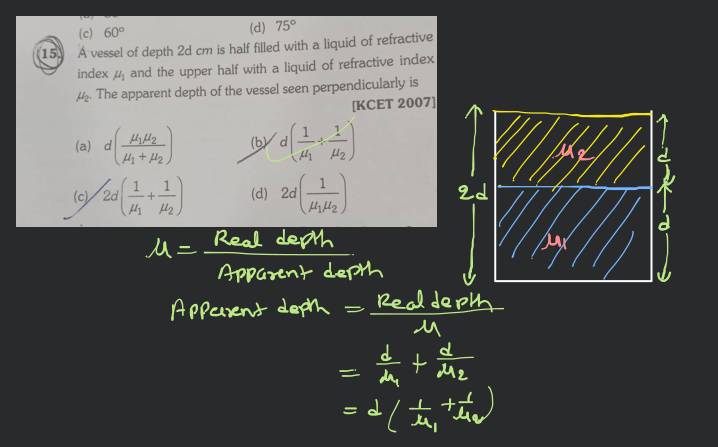 (c) 60° (d) 75°
15. A vessel of depth 2d cm is half filled with a liquid of refractive
index μ₁ and the upper half with a liquid of refractive index
μ₂. The apparent depth of the vessel seen perpendicularly is
[KCET 2007]
(a) d(μ₁μ₂/(μ₁ + μ₂)) (b) d(1/μ₁ + 1/μ₂)
(c) 2d(1/μ₁ + 1/μ₂) (d) 2d(1/μ₁μ₂)
μ₂
d
2d
μ₁
d
μ = Real depth / Apparent depth
Apparent depth = Real depth / μ
= d/μ₁ + d/μ₂
= d(1/μ₁ + 1/μ₂)